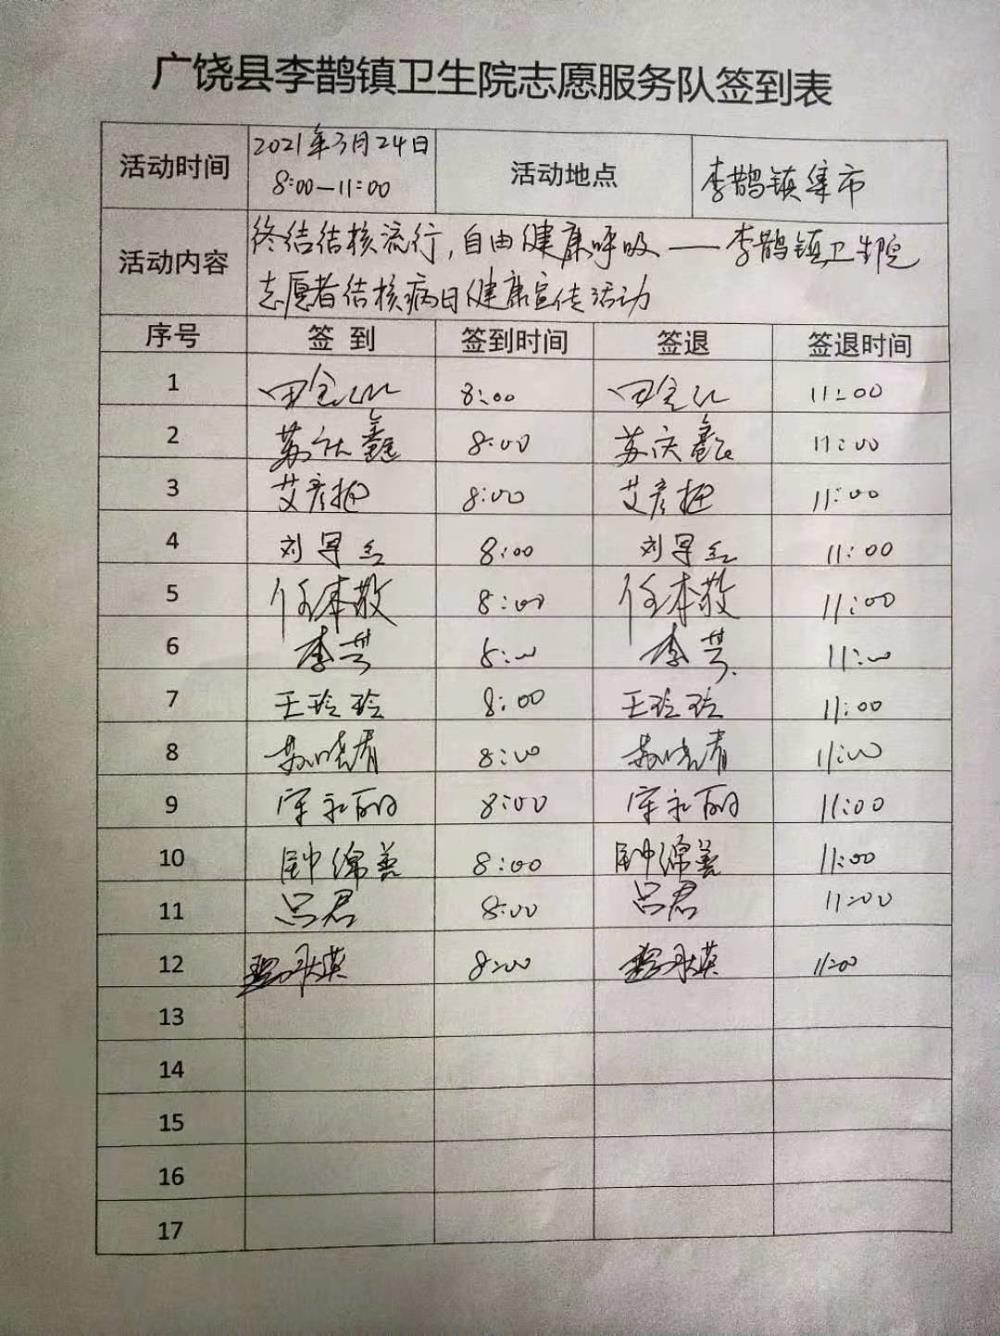 广饶县李鹊镇卫生院志愿服务队签到表
活动时间 2021年3月24日 8:00—11:00 活动地点 李鹊镇集市
活动内容 终结结核流行,自由健康呼吸——李鹊镇卫生院
志愿者结核病日健康宣传活动
序号 签到 签到时间 签退 签退时间
1 8:00 11:00
2 苏庆鑫 8:00 苏庆鑫 11:00
3 艾彦 8:00 艾彦 11:00
4 刘 8:00 刘 11:00
5 任本敬 8:00 任本敬 11:00
6 李 8:00 李 11:00
7 王玲玲 8:00 王玲玲 11:00
8 苏晓青 8:00 苏晓青 11:00
9 宋永丽 8:00 宋永丽 11:00
10 8:00 11:00
11 吕君 8:00 吕君 11:00
12 8:00 11:00
13
14
15
16
17